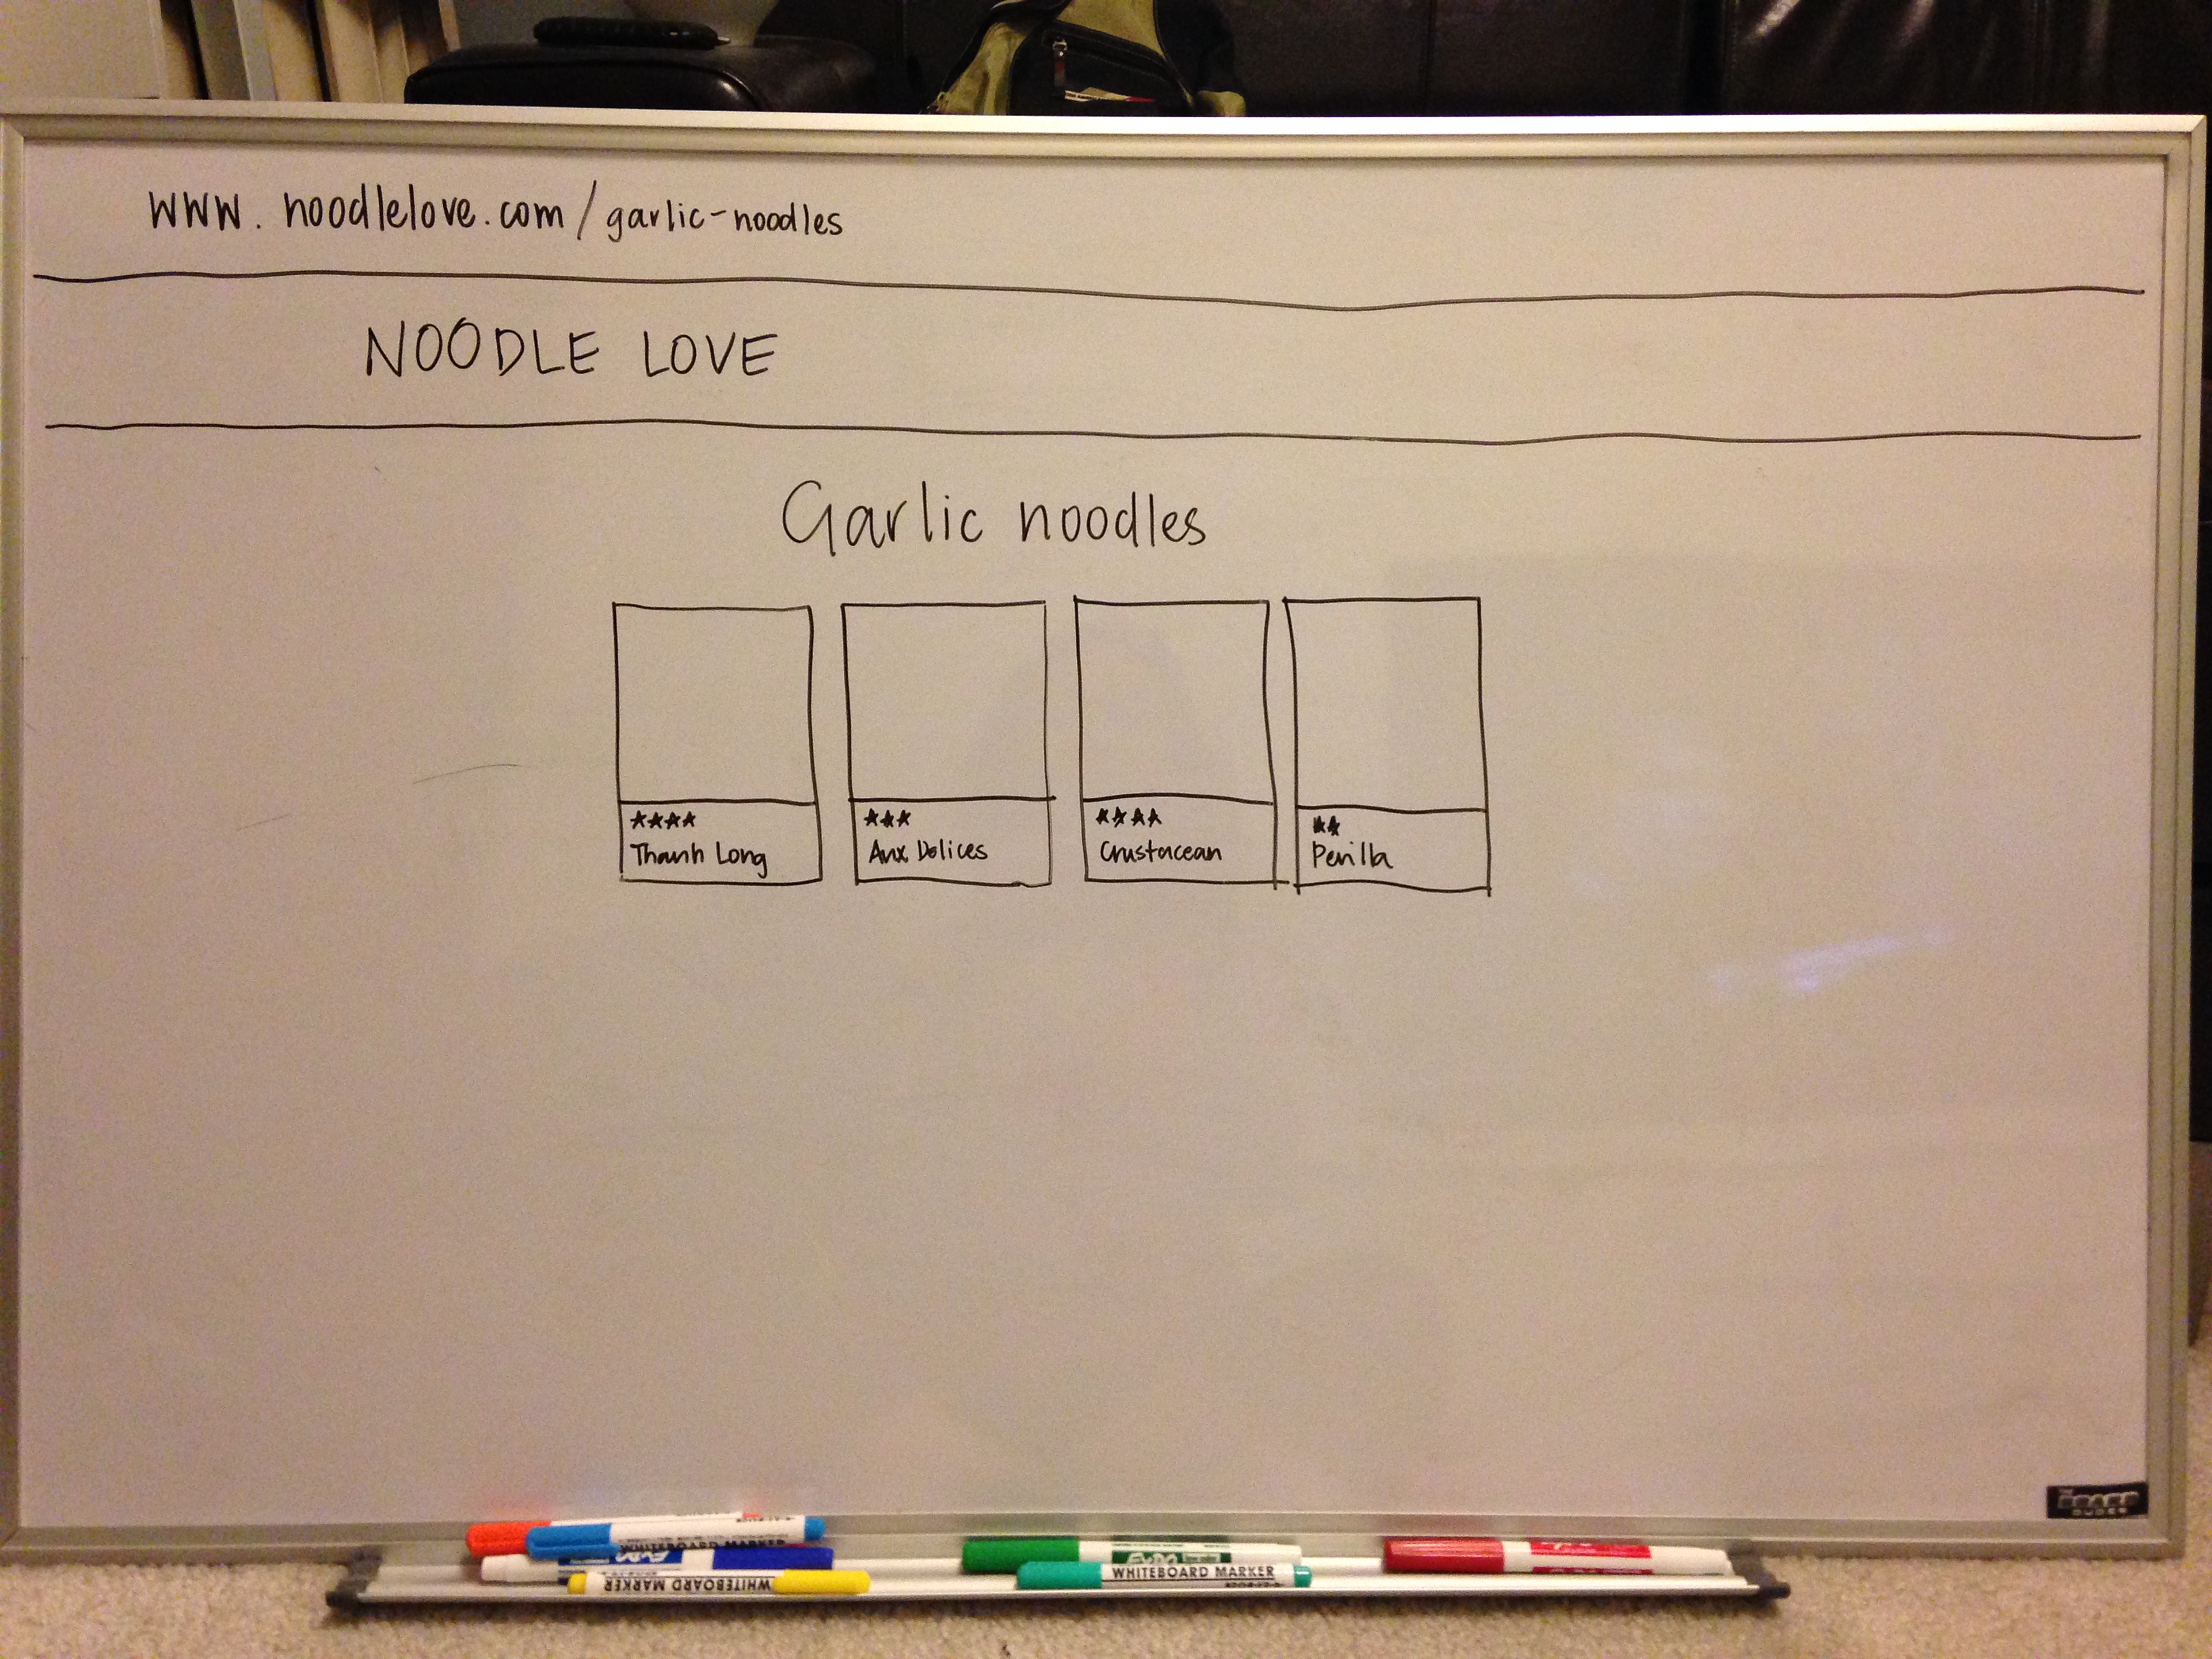 www.noodlelove.com/garlic-noodles
NOODLE LOVE
Garlic noodles
★★★★
Thanh Long
★★★
Aux Delices
★★★★
Crustacean
★★
Perilla
WHITEBOARD MARKER
EXPO
WHITEBOARD MARKER
EXPO
WHITEBOARD MARKER
THE
BOARD
DUDES